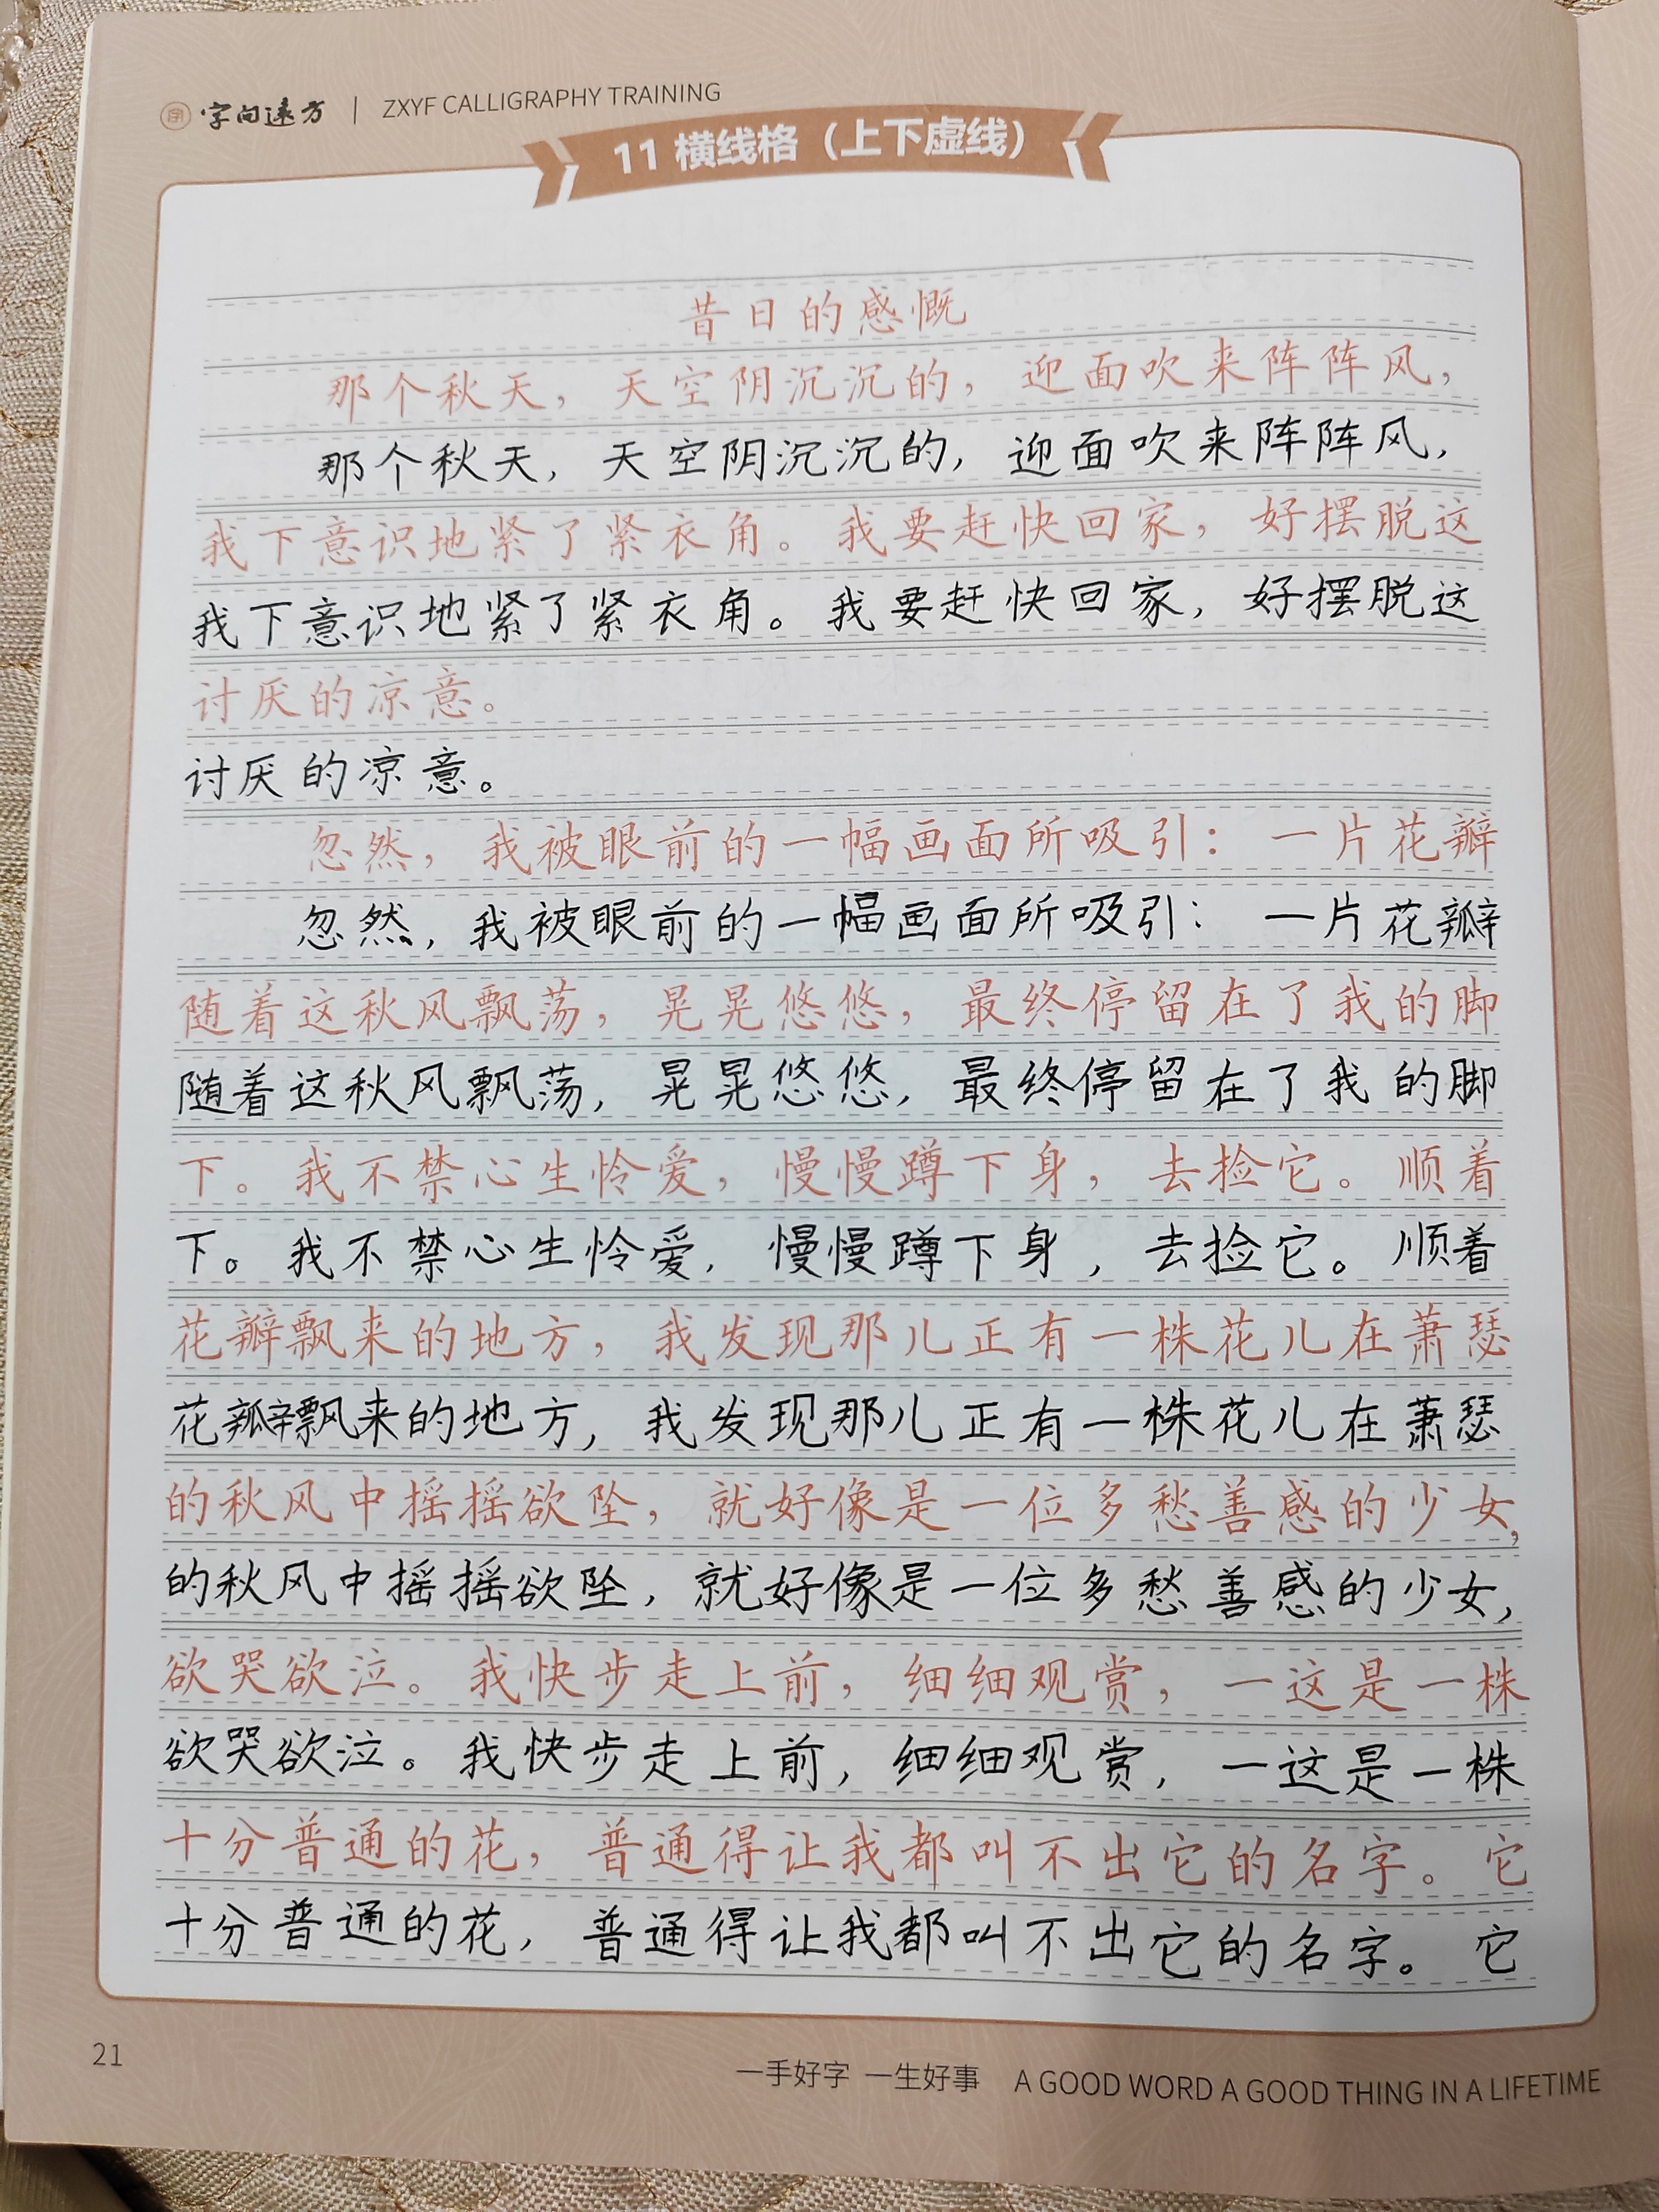 字向远方 | ZXYF CALLIGRAPHY TRAINING
11 横线格（上下虚线）
昔日的感慨
那个秋天，天空阴沉沉的，迎面吹来阵阵风，
那个秋天，天空阴沉沉的，迎面吹来阵阵风，
我下意识地紧了紧衣角。我要赶快回家，好摆脱这
我下意识地紧了紧衣角。我要赶快回家，好摆脱这
讨厌的凉意。
讨厌的凉意。
忽然，我被眼前的一幅画面所吸引：一片花瓣
忽然，我被眼前的一幅画面所吸引：一片花瓣
随着这秋风飘荡，晃晃悠悠，最终停留在了我的脚
随着这秋风飘荡，晃晃悠悠，最终停留在了我的脚
下。我不禁心生怜爱，慢慢蹲下身，去捡它。顺着
下。我不禁心生怜爱，慢慢蹲下身，去捡它。顺着
花瓣飘来的地方，我发现那儿正有一株花儿在萧瑟
花瓣飘来的地方，我发现那儿正有一株花儿在萧瑟
的秋风中摇摇欲坠，就好像是一位多愁善感的少女，
的秋风中摇摇欲坠，就好像是一位多愁善感的少女，
欲哭欲泣。我快步走上前，细细观赏，一这是一株
欲哭欲泣。我快步走上前，细细观赏，一这是一株
十分普通的花，普通得让我都叫不出它的名字。它
十分普通的花，普通得让我都叫不出它的名字。它
21
一手好字 一生好事 A GOOD WORD A GOOD THING IN A LIFETIME